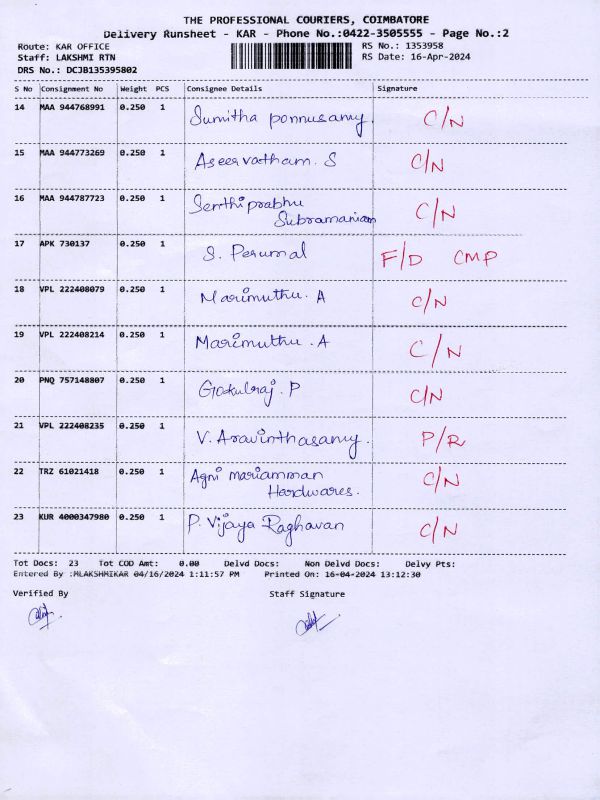 THE PROFESSIONAL COURIERS, COIMBATORE
Delivery Runsheet - KAR - Phone No.:0422-3505555 - Page No.:2
Route: KAR OFFICE RS No.: 1353958
Staff: LAKSHMI RTN RS Date: 16-Apr-2024
DRS No.: DCJB135395802
S No Consignment No Weight PCS Consignee Details Signature
14 MAA 944768991 0.250 1 Sumitha ponnusamy. C/N
15 MAA 944773269 0.250 1 Aseervatham. S C/N
16 MAA 944787723 0.250 1 Senthiprabhu C/N
Subramaniam
17 APK 730137 0.250 1 S. Perumal F/D CMP
18 VPL 222408079 0.250 1 Marimuthu. A C/N
19 VPL 222408214 0.250 1 Marimuthu. A C/N
20 PNQ 757148807 0.250 1 Gokulraj. P C/N
21 VPL 222408235 0.250 1 V. Aravinthasamy. P/R
22 TRZ 61021418 0.250 1 Agni mariamman C/N
Hardwares.
23 KUR 4000347980 0.250 1 P. Vijaya Raghavan C/N
Tot Docs: 23 Tot COD Amt: 0.00 Delvd Docs: Non Delvd Docs: Delvy Pts:
Entered By :MLAKSHMIKAR 04/16/2024 1:11:57 PM Printed On: 16-04-2024 13:12:30
Verified By Staff Signature